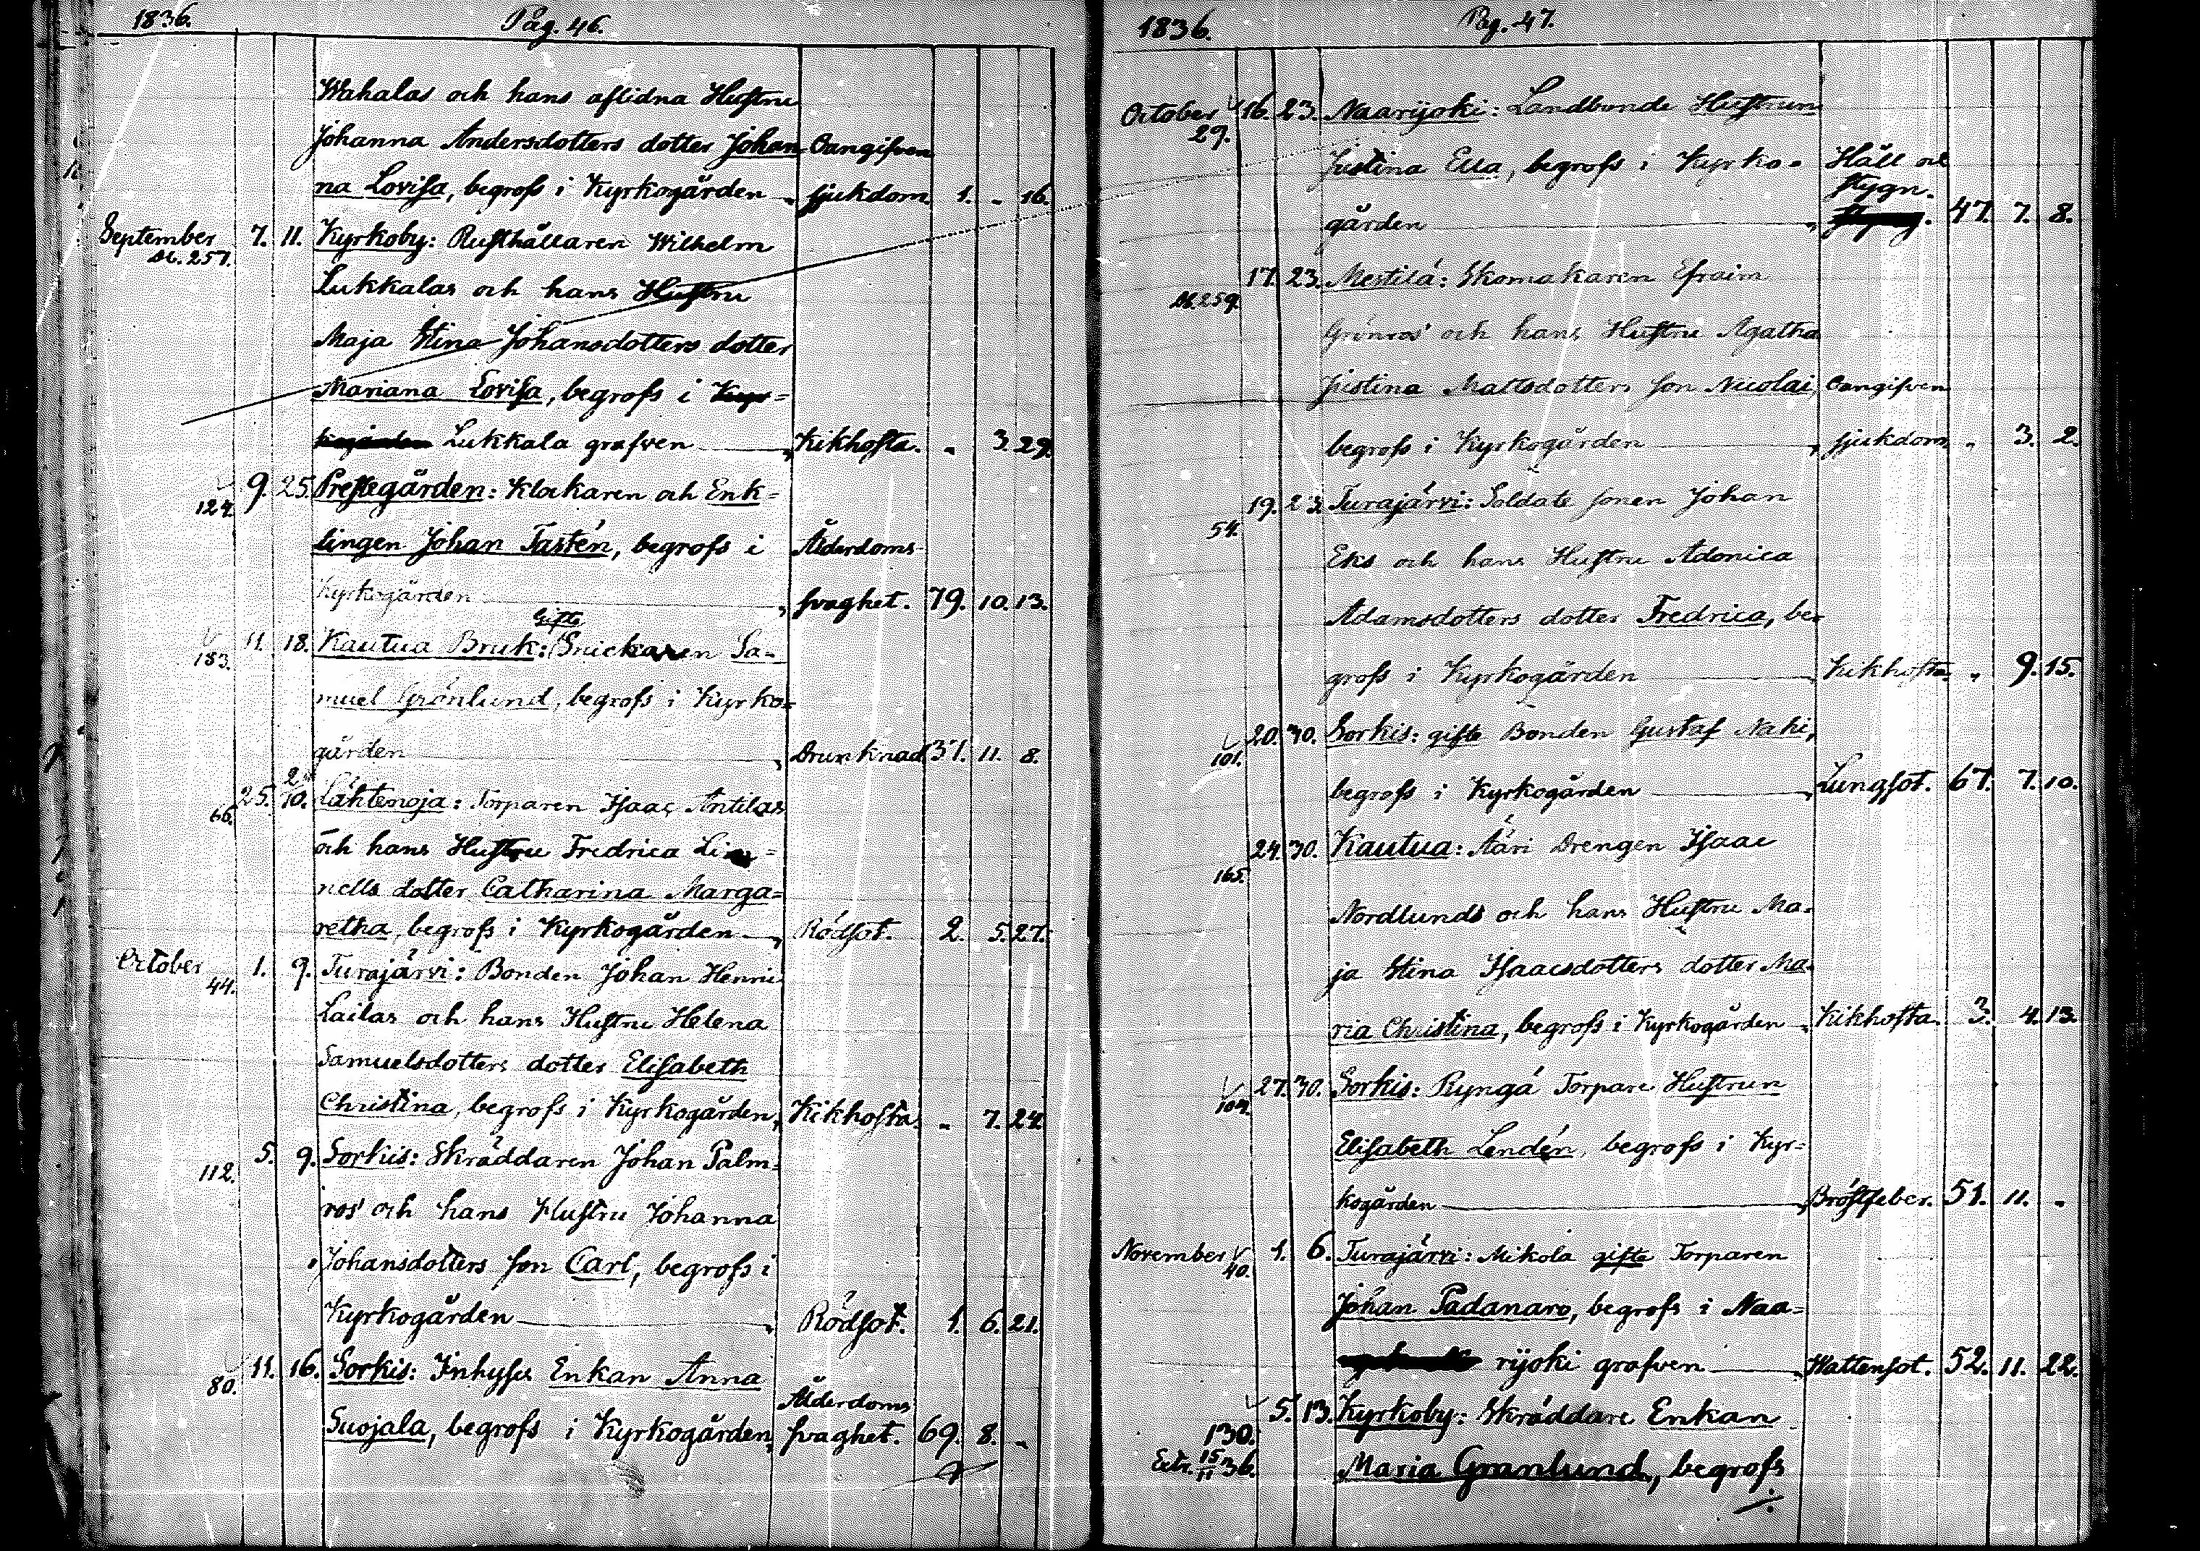 1836. Pag. 46.
Wahalas och hans aflidna Hustru
Johanna Andersdotters dotter Johan- Oangifven
na Lovisa, begrofs i Kyrkogården „ sjukdom. 1. „ 16.
September 7. 11. Kyrkoby: Rusthållaren Wilhelm
st. 257.
Lukkalas och hans Hustru
Maja Stina Johansdotters dotter
Mariana Lovisa, begrofs i Kyr-
kogården Lukkala grafven „ Kikhosta. „ 3. 29.
9. 25. Prestegården: Klockaren och Enk-
124.
lingen Johan Tastén, begrofs i Ålderdoms-
Kyrkogården „ svaghet. 79. 10. 13.
Gifte
11. 18. Kautua Bruk: Snickaren Sa-
183.
muel Grönlund, begrofs i Kyrko-
gården „ Drunknad 37. 11. 8.
25. 2/10. Lähtenoja: Torparen Isaac Antilas
66.
och hans Hustru Fredrica Lin-
nells dotter Catharina Marga-
retha, begrofs i Kyrkogården „ Rödsot. 2. 5. 27.
October 1. 9. Turajärvi: Bonden Johan Henric
44.
Lailas och hans Hustru Helena
Samuelsdotters dotter Elisabeth
Christina, begrofs i Kyrkogården, Kikhosta. „ 7. 24.
5. 9. Sorkis: Skräddaren Johan Palm-
112.
ros' och hans Hustru Johanna
Johansdotters son Carl, begrofs i
Kyrkogården „ Rödsot. 1. 6. 21.
11. 16. Sorkis: Inhyses Enkan Anna
80.
Ålderdoms
Suojala, begrofs i Kyrkogården, svaghet. 69. 8. „
1836. Pag. 47.
October 16. 23. Naarijoki: Landbonde Hustrun
29.
Justina Ella, begrofs i Kyrko- Håll och
stygn.
gården „ 47. 7. 8.
17. 23. Mestilä: Skomakaren Efraim
st. 259.
Grönros' och hans Hustru Agatha
Justina Mattsdotters son Nicolai, Oangifven
begrofs i Kyrkogården „ sjukdom „ 3. 2.
19. 23. Turajärvi: Soldate sonen Johan
54.
Eks och hans Hustru Adonica
Adamsdotters dotter Fredrica, be-
grofs i Kyrkogården „ Kikhosta „ 9. 15.
20. 30. Sorkis: gifte Bonden Gustaf Nahi,
101.
begrofs i Kyrkogården „ Lungsot. 67. 7. 10.
24. 30. Kautua: Ääri Drengen Isaac
165.
Nordlunds och hans Hustru Ma-
ja Stina Isaacsdotters dotter Ma-
ria Christina, begrofs i Kyrkogården „ Kikhosta. 3. 4. 13.
27. 30. Sorkis: Ryngä Torpare Hustrun
104.
Elisabeth Lendén, begrofs i Kyr-
kogården „ Bröstfeber. 51. 11. „
November 1. 6. Turajärvi: Mikola gifte Torparen
40.
Johan Padanaro, begrofs i Naa-
rijoki grafven „ Wattensot. 52. 11. 22.
5. 13. Kyrkoby: Skräddare Enkan
130.
Extr. 15/11 36. Maria Granlund, begrofs